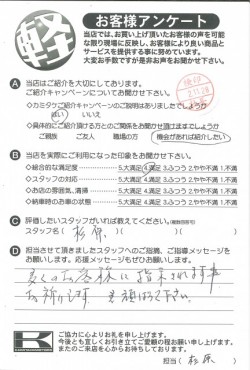 軽
お客様アンケート
当店では、お買い上げ頂いたお客様の声を可能な限り現場に反映し、お客様により良い商品とサービスを提供する事に努めています。
大変お手数ですが是非お声をお聞かせ下さい。
A 当店はご紹介を大切にしております。
ご紹介キャンペーンについてお聞かせ下さい。
◇カミタケご紹介キャンペーンのご説明はありましたでしょうか
はい いいえ
◇具体的にご紹介頂ける方とのご関係をお聞かせ頂けますでしょうか
ご親族 ご友人 職場の方 機会があれば紹介したい
B 当店を実際にご利用になった印象をお聞かせ下さい。
◇総合的な満足度 5.大満足 4.満足 3.ふつう 2.やや不満 1.不満
◇スタッフの対応 5.大満足 4.満足 3.ふつう 2.やや不満 1.不満
◇お店の雰囲気、清掃 5.大満足 4.満足 3.ふつう 2.やや不満 1.不満
◇納車時のお車の状態 5.大満足 4.満足 3.ふつう 2.やや不満 1.不満
C 評価したいスタッフがいれば教えてください。(複数回答可)
スタッフ名( 杉原、 )
D 担当させて頂きましたスタッフへのご指摘、ご指導メッセージを
お願いします。応援メッセージもお願いします。
多くのお客様に指示されます事
お祈りします 頑ばって下さい。
K
ご協力に心よりお礼を申し上げます。
今後とも宜しくお引き立てご愛顧の程お願い申し上げます。
またのご来店を心からお待ちしております。
担当( 杉原 )